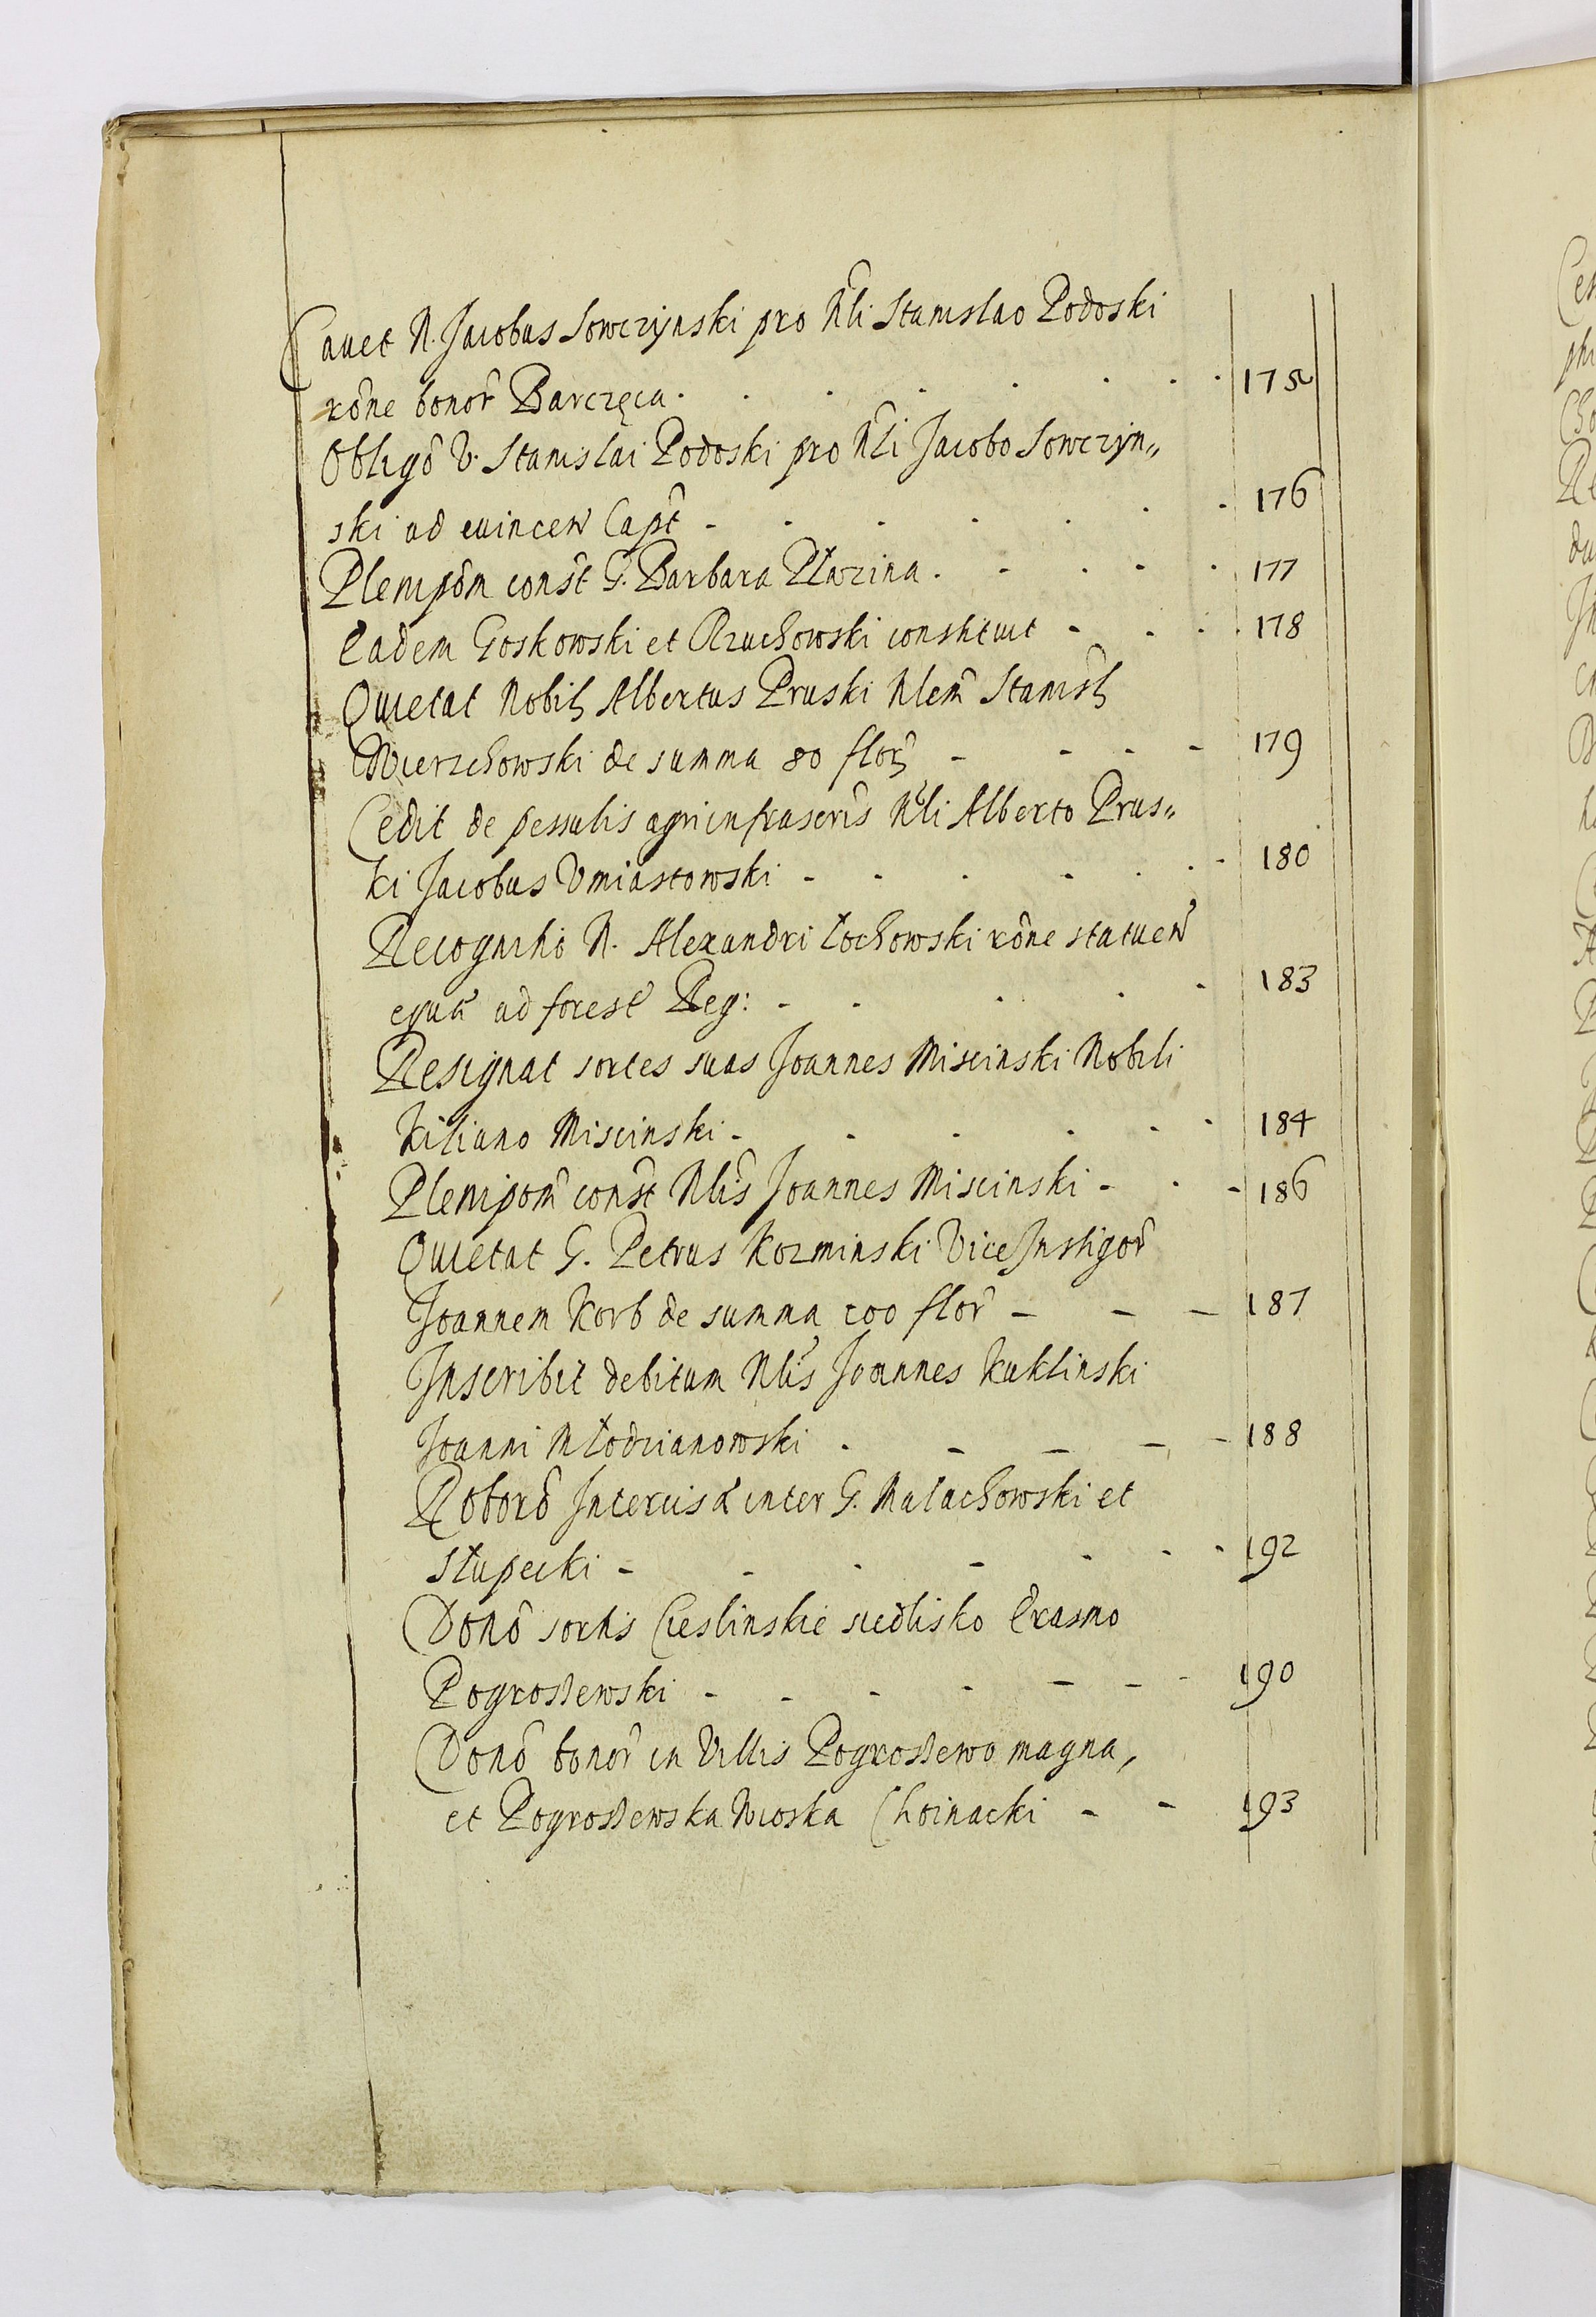 Cauet N. Jacobus Sowczynski pro Nli Stanislao Podoski
rône bonor Barczęca . . . . . . . 175
Obligõ V. Stanislai Podoski pro Nli Jacobo Sowczyn„
ski ad euincen Capt - . . . . . . 176
Plenipôm const G. Barbara Pławzina . - . - . 177
Eadem Goskowski et Rzuchowski constituit - . . . 178
Quietat Nobil Albertus Pruski Nlem Stanisl
Wierzchowski de summa 80 flor - - - - 179
Cedit de pessulis agri infrascris Nli Alberto Prus„
ki Jacobus Vmiastowski - . . - . . - 180
Recognitio N. Alexandri Łochowski rône statuen
equi ad forest Reg: - . . . - 183
Resignat sortes suas Joannes Miscinski Nobili
Kiliano Miscinski - . . . . . 184
Plenipom const Nlis Joannes Miscinski - . - 186
Quietat G. Petrus Kozminski Vice Instigor
Joannem Korb de summa 200 flor - - - 187
Inscribit debitum Nlis Joannes Kuklinski
Joanni Młodzianowski . - - - - 188
Roborõ Intercisæ inter G. Małachowski et
Słupecki - - . - . . . 192
Donõ sortis Cieslinskie siedlisko Erasmo
Pogrossewski - - - - - - - 190
Donõ bonor in Villis Pogrossewo magna,
et Pogrossewska Wioska Choinacki - - 193